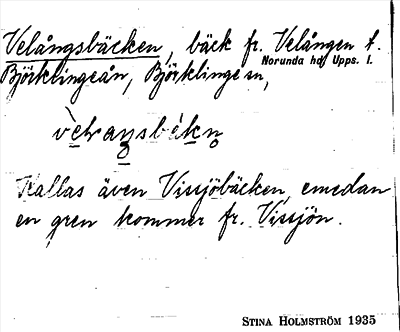 Velångsbäcken, bäck fr. Velången t.
Norunda hd, Upps. l.
Björklingeån, Björklinge sn,
Kallas även Vissjöbäcken, emedan
en gren kommer fr. Vissjön.
STINA HOLMSTRÖM 1935